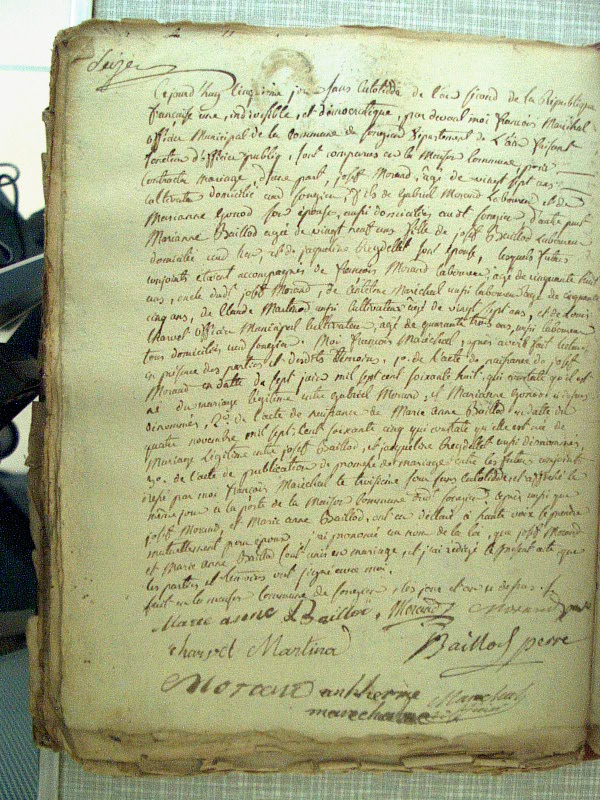 Seize
Cejourd'huy cinquieme jour sans culotide de l'an second de la République
française une, indivisible, et démocratique, par devant moi françois Maréchal
officier Municipal de la Commune de songieu Département de l'ain faisant
fonction d'officier public, sont comparus en la Maison Commune, pour
contracter mariage, d'une part, joseph Morand, âgé de vingt sept ans
cultivateur domicilié aud songieu, fils de Gabriel Morand Laboureur et de
Marianne son épouse, aussi domiciliés audt songieu, d'autre part
Marianne Baillod agée de vingt neuf ans fille de joseph Baillod Laboureur
domicilié aud lieu, et de jaqueline son épouse, lesquels futurs
conjoints étaient accompagnés de françois Morand laboureur, agé de cinquante huit
ans, oncle dudt joseph Morand, de Maréchal aussi laboureur agé de cinquante
cinq ans, de Claude Martinod aussi cultivateur agé de vingt sept ans, et de Louis
Charvet officier Municipal Cultivateur, agé de quarante trois ans, aussi laboureur
tous domiciliés, aud songieu. Moi françois Maréchal, après avoir fait lecture
en présence des parties et desdits témoins, 1o. de l'acte de naissance de joseph
Morand en datte du sept juin mil sept cent soixante huit, qui constate qu'il est
né du mariage légitime entre Gabriel Morand, et Marianne ci dessus
dénommés, 2o. de l'acte de naissance de Marie anne Baillod en datte du
quatre novembre mil sept cent soixante cinq qui constate qu'elle est née du
Mariage Légitime entre joseph Baillod, et jacqueline aussi dénommés,
3o. de l'acte de publication de promesse de mariage entre les futurs conjoints
par moi françois Maréchal le troisieme jour sans culotide, et affiché le
même jour à la porte de la Maison Commune dud songieu, après aussi que
joseph Morand, et Marie anne Baillod, ont eu déclaré à haute voix se prendre
mutuellement pour époux, j'ai prononcé au nom de la loi, que joseph Morand
et Marie anne Baillod sont unis en mariage, et j'ai rédigé le présent acte que
les parties et témoins ont signé avec moi.
fait en la maison Commune de songieu, les jour et an ci dessus.
Marie anne Baillot, Morand Morand
charvet Martinod Baillod perre
Morand anthelme Marechal
marechal